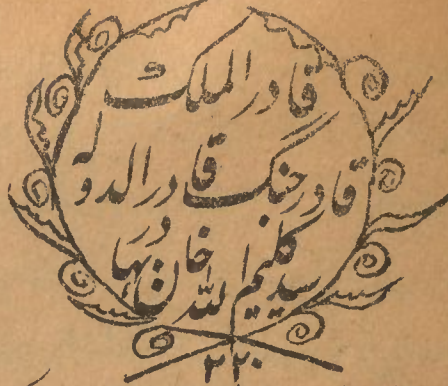 قادر الملک
قادر جنگ قادر الدولہ
سید کلیم اللہ خان بہادر